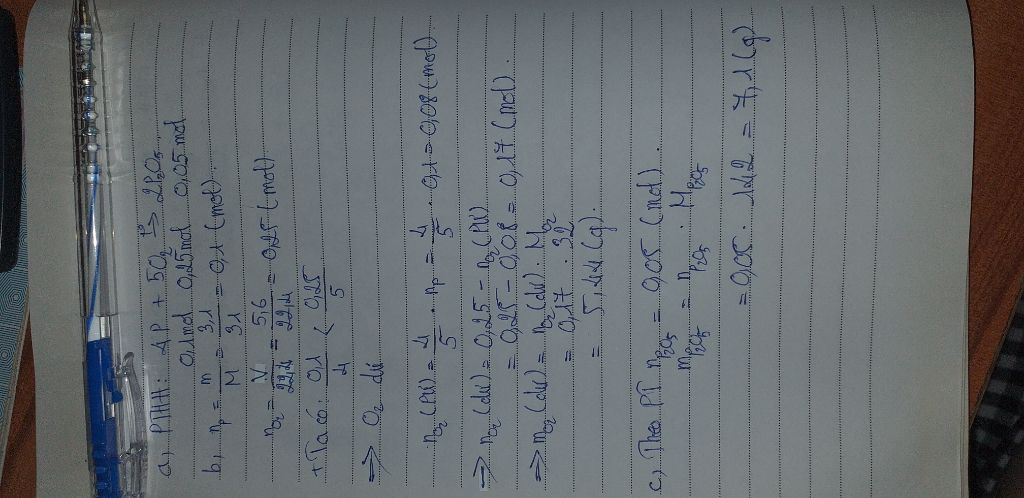 a, PTHH: 4P + 5O₂ t°→ 2P₂O₅
0,1mol 0,25mol 0,05mol
b, nₚ = m/M = 3,1/31 = 0,1 (mol).
n_O₂ = V/22,4 = 5,6/22,4 = 0,25 (mol)
+ Ta có: 0,1/4 < 0,25/5
⇒ O₂ dư
n_O₂ (PƯ) = 4/5 . nₚ = 4/5 . 0,1 = 0,08 (mol)
⇒ n_O₂ (dư) = 0,25 - n_O₂ (PƯ)
= 0,25 - 0,08 = 0,17 (mol).
⇒ m_O₂ (dư) = n_O₂ (dư) . M_O₂
= 0,17 . 32
= 5,44 (g).
c, Theo PT n_P₂O₅ = 0,05 (mol).
m_P₂O₅ = n_P₂O₅ . M_P₂O₅
= 0,05 . 142 = 7,1 (g)